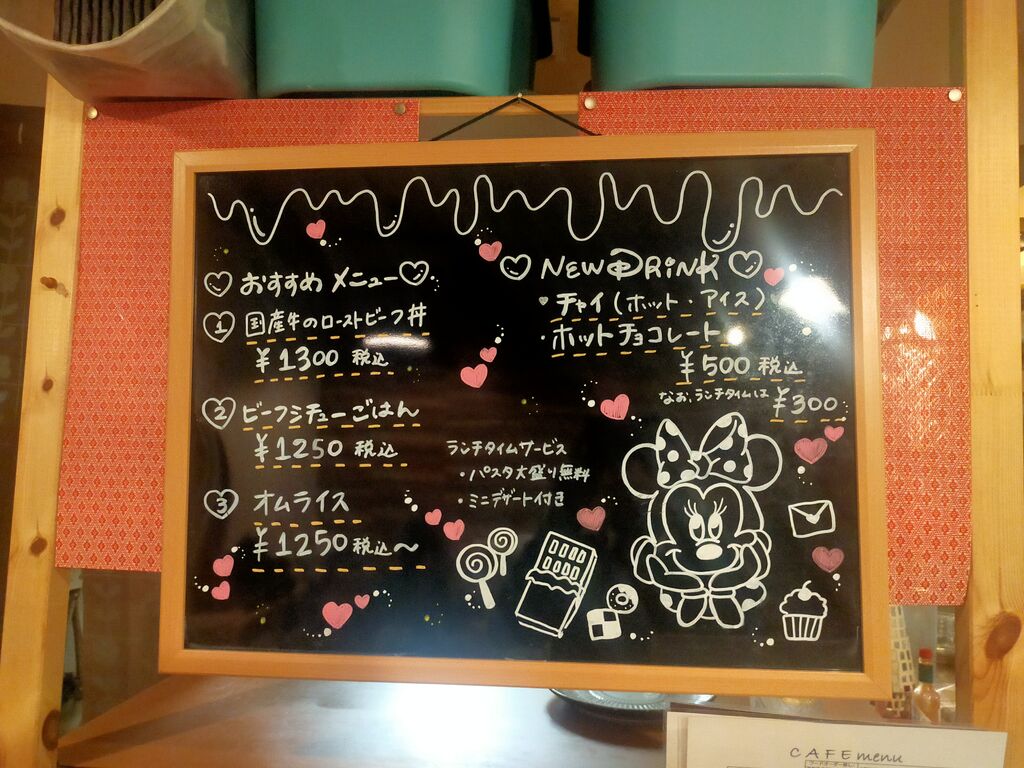 おすすめ メニュー
1 国産牛のローストビーフ丼
¥1300 税込
2 ビーフシチューごはん
¥1250 税込
3 オムライス
¥1250 税込〜
ランチタイムサービス
・パスタ大盛り無料
・ミニデザート付き
NEW DRINK
チャイ(ホット・アイス)
・ホットチョコレート
¥500 税込
なお、ランチタイムは ¥300
CAFE menu